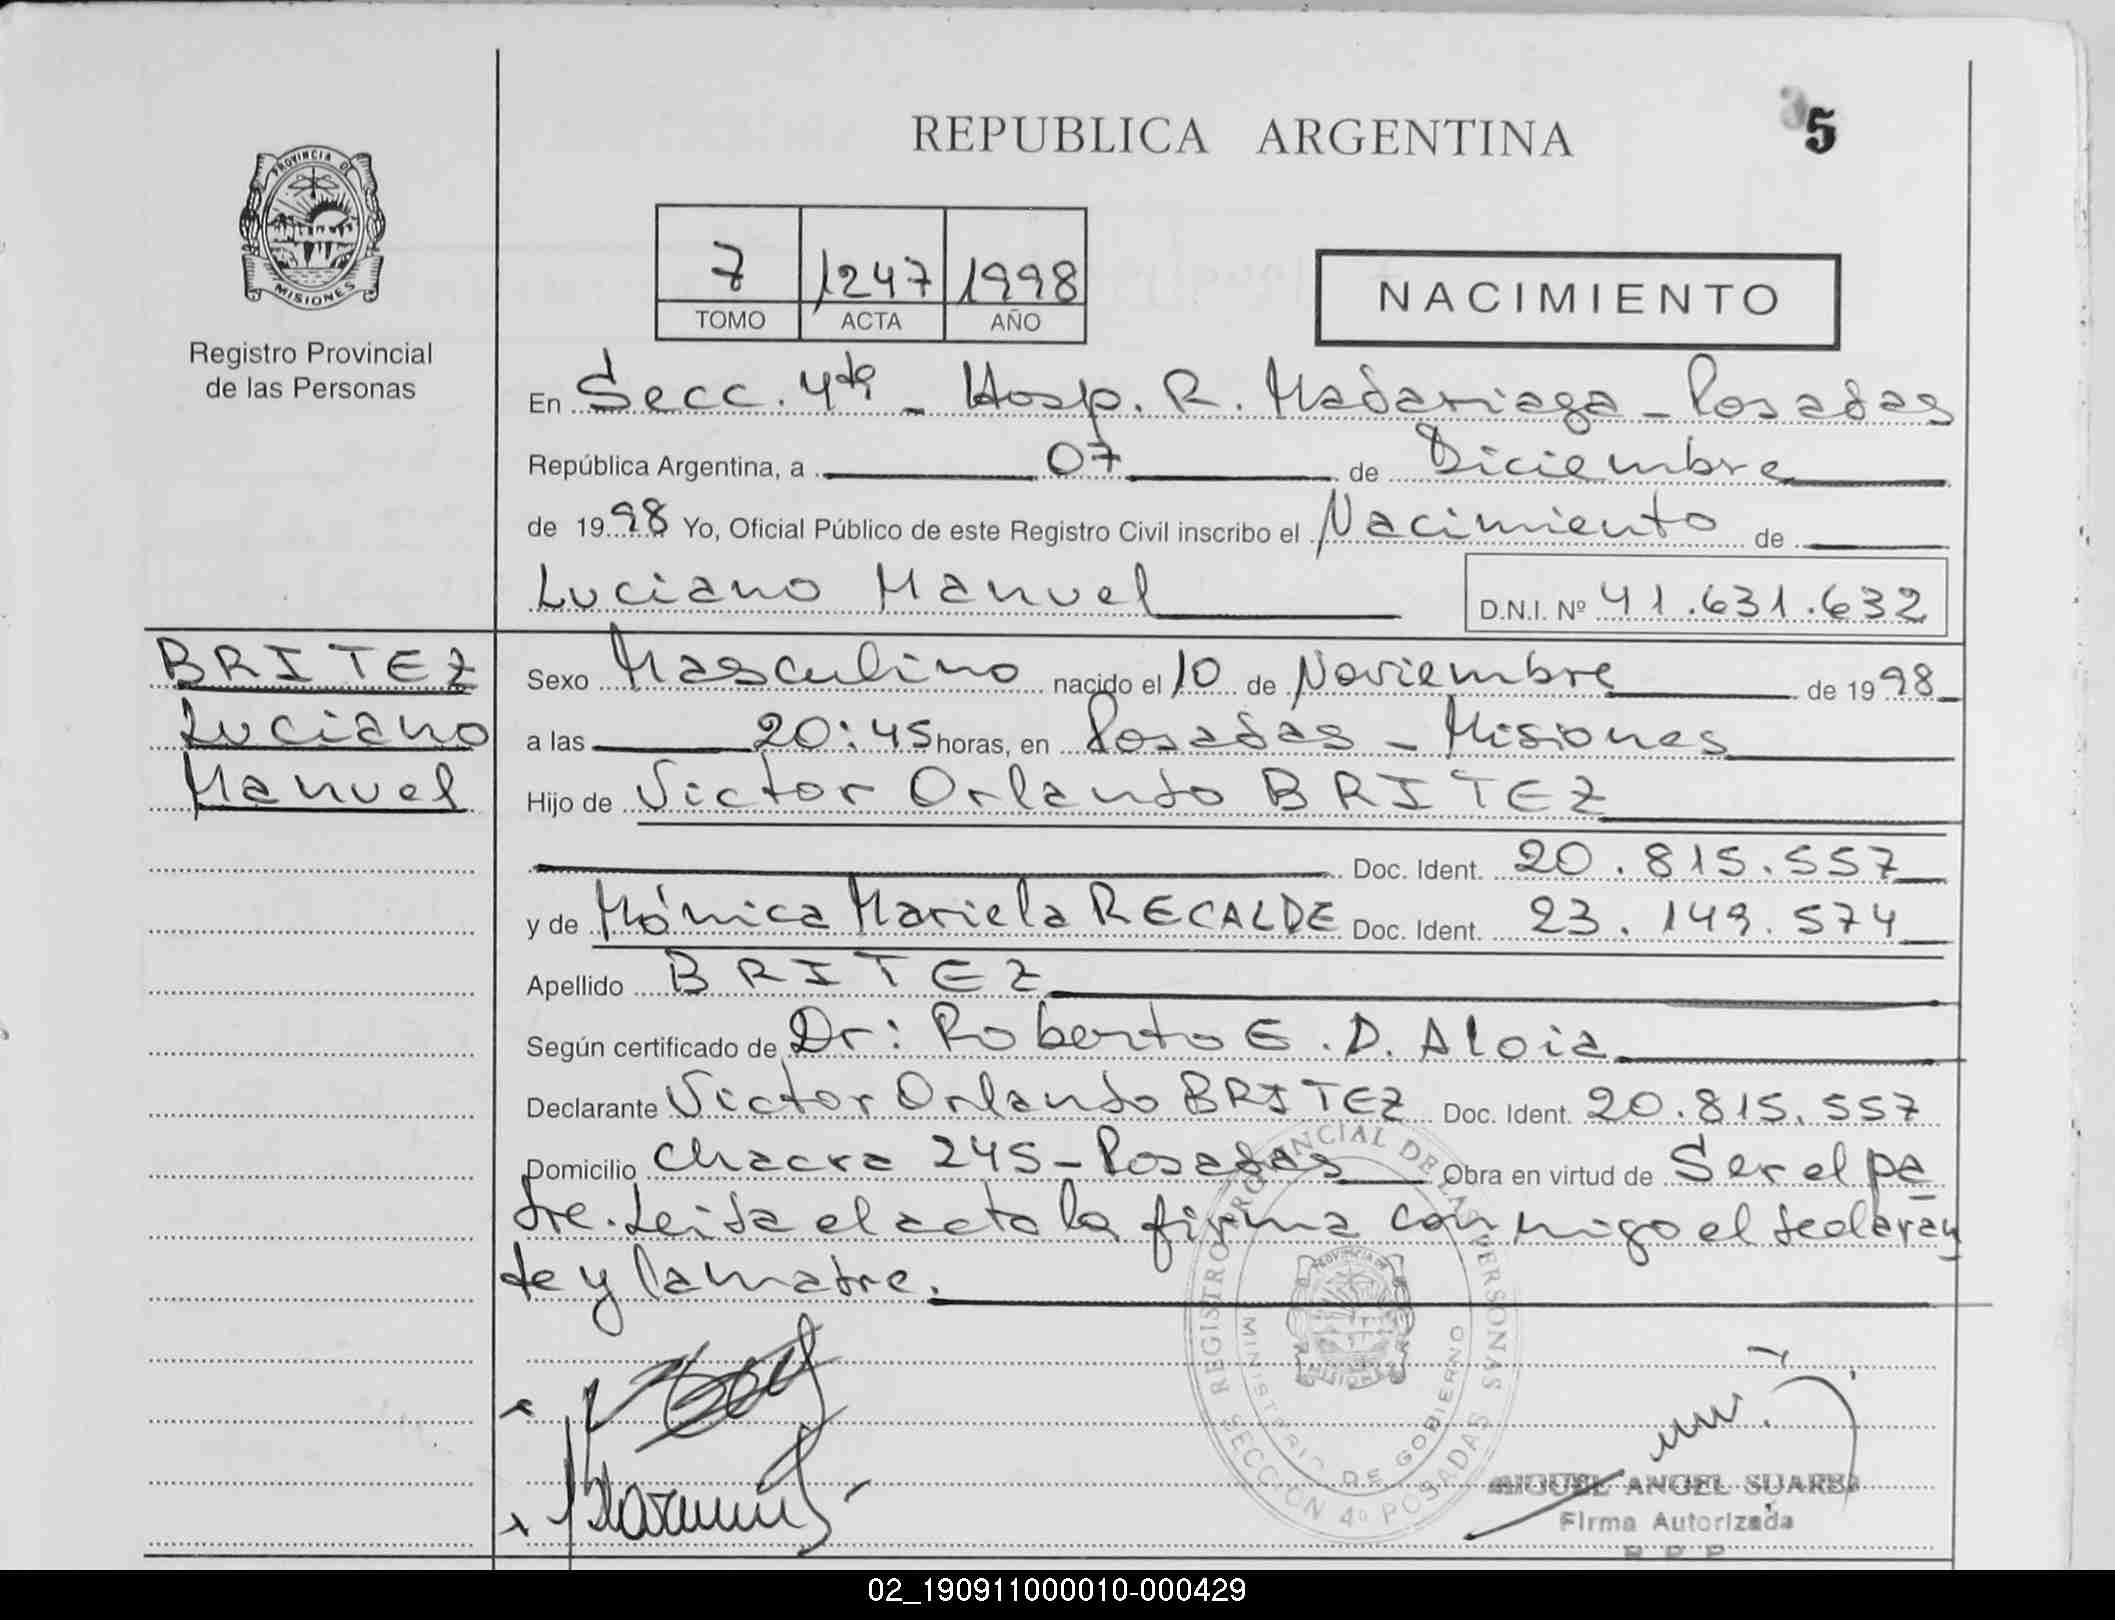 REPUBLICA ARGENTINA
5
PROVINCIA DE
MISIONES
Registro Provincial
de las Personas
7 1247 1998
TOMO ACTA AÑO
NACIMIENTO
En Secc. 4ta - Hosp. R. Madariaga - Posadas
República Argentina, a 07 de Diciembre
de 1998 Yo, Oficial Público de este Registro Civil inscribo el Nacimiento de
Luciano Manuel D.N.I. Nº 41.631.632
BRITEZ
Luciano
Manuel
Sexo Masculino nacido el 10 de Noviembre de 1998
a las 20:45 horas, en Posadas - Misiones
Hijo de Victor Orlando BRITEZ
Doc. Ident. 20.815.557
y de Mónica Mariela RECALDE Doc. Ident. 23.149.574
Apellido BRITEZ
Según certificado de Dr: Roberto E. D. Aloia
Declarante Victor Orlando BRITEZ Doc. Ident. 20.815.557
Domicilio Chacra 245 - Posadas Obra en virtud de Ser el pa
dre. Leida el acta la firma conmigo el declaran
te y la madre.
REGISTRO PROVINCIAL DE LAS PERSONAS
MINISTERIO DE GOBIERNO
SECCION 4º POSADAS
MIGUEL ANGEL SUAREZ
Firma Autorizada
R. P. P.
02_190911000010-000429